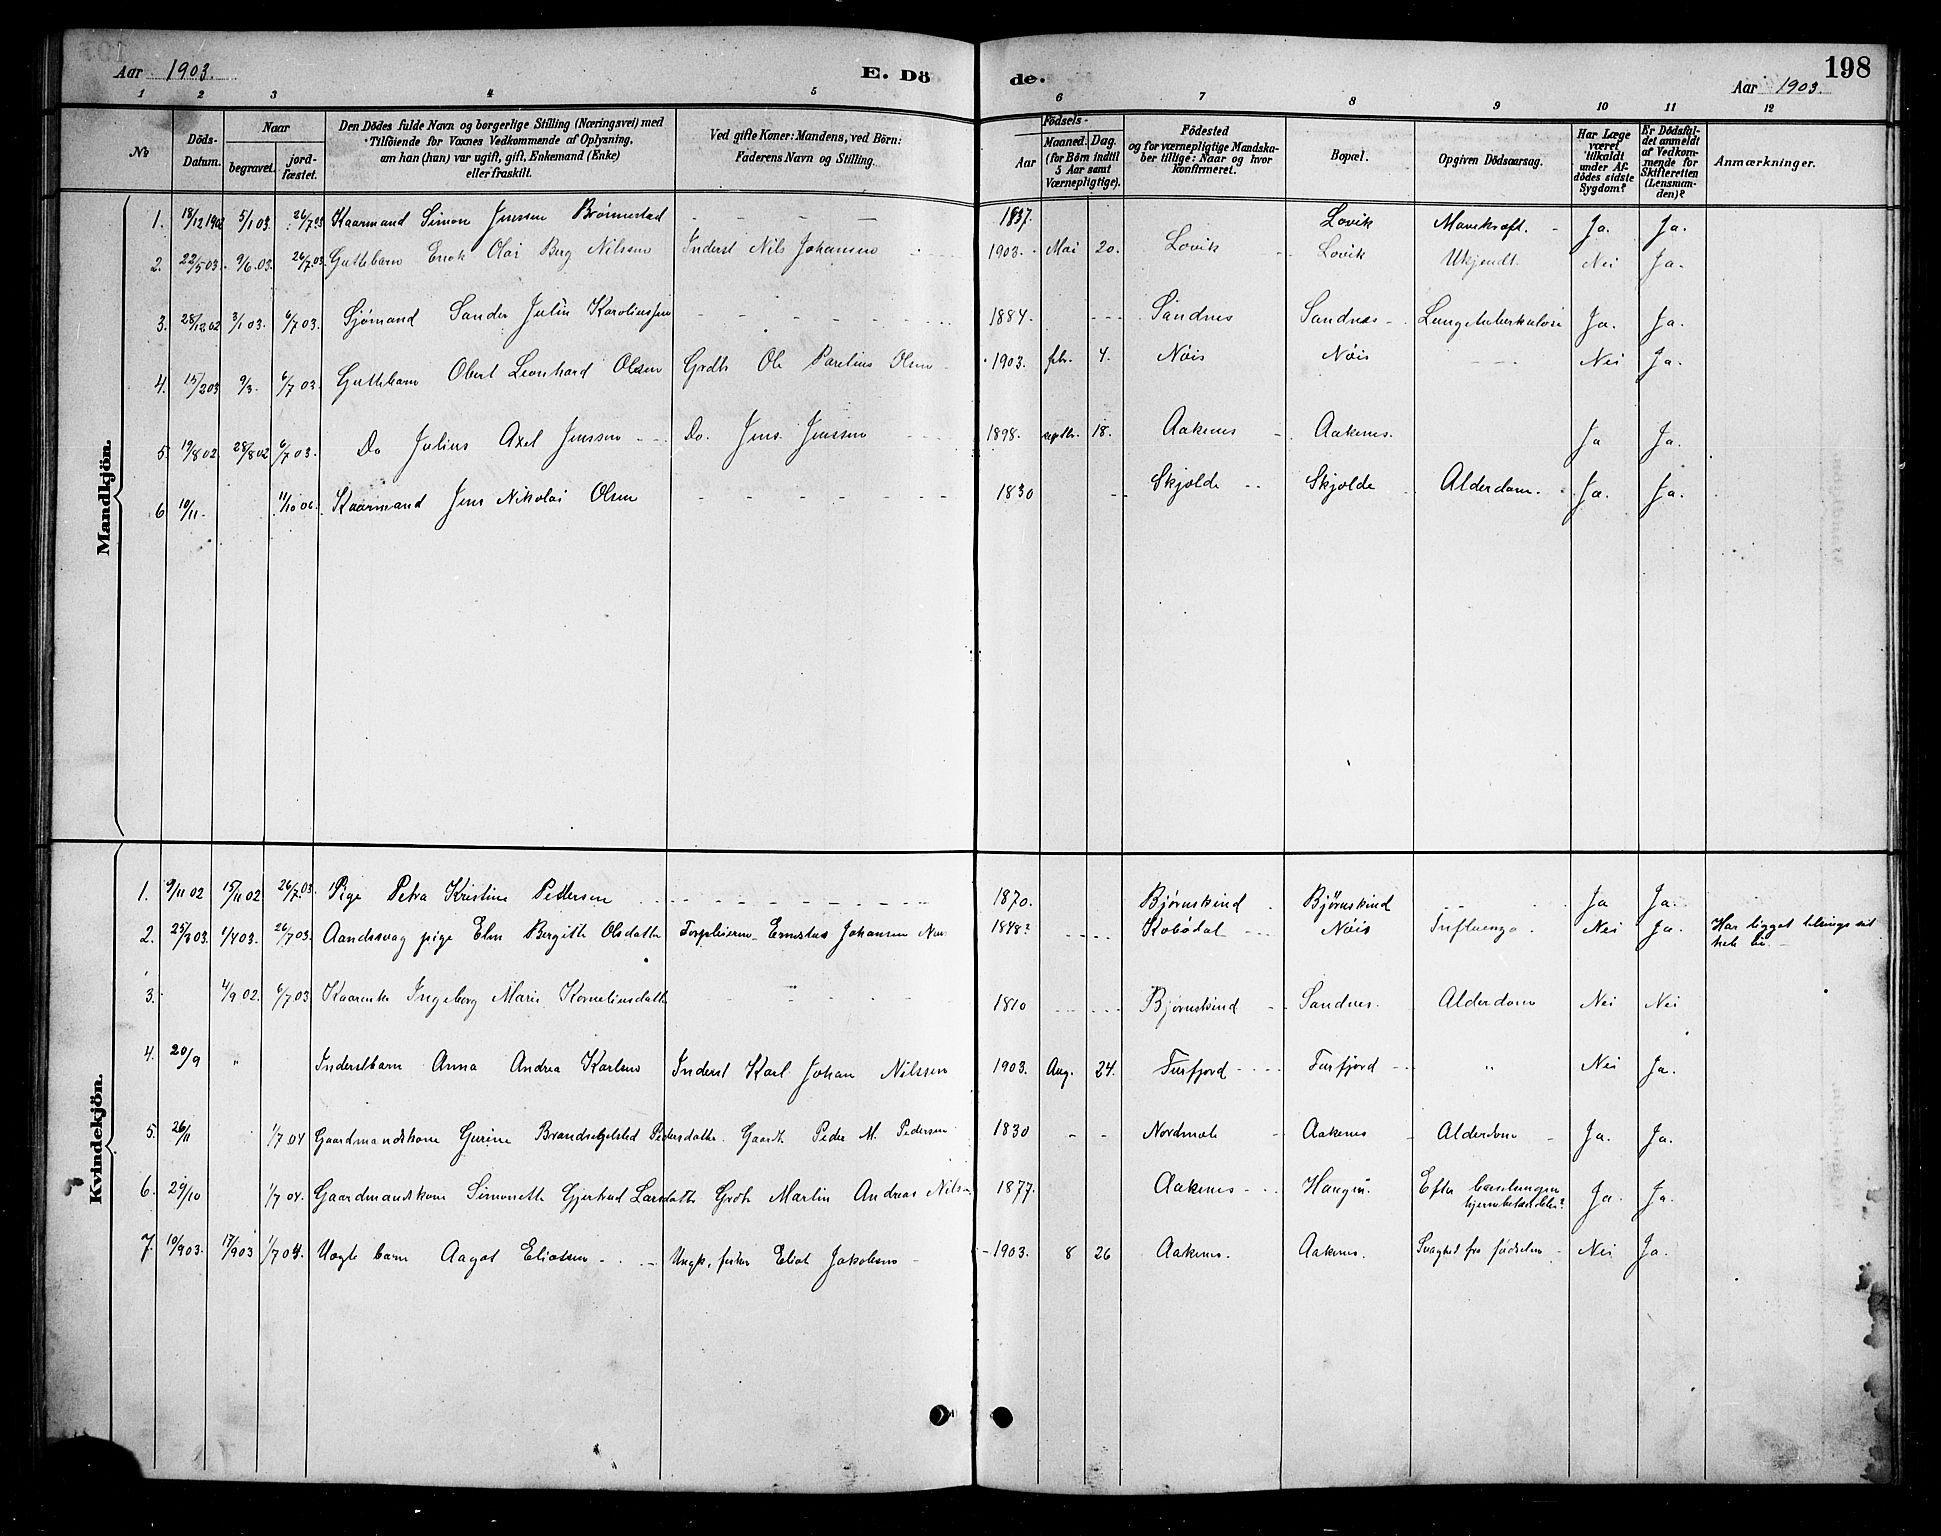 198
Aar 1903. E. Dö de. Aar 1903.
1 2 3 4 5 6 7 8 9 10 11 12
No
Döds-Datum.
Naar
begravet. jord-fæstet.
Den Dödes fulde Navn og borgerlige Stilling (Næringsvei) med
Tilföiende for Voxnes Vedkommende af Oplysning,
om han (hun) var ugift, gift, Enkemand (Enke)
eller fraskilt.
Ved gifte Koner: Mandens, ved Börn:
Faderens Navn og Stilling.
Födsels-
Aar Maaned. Dag.
(for Börn indtil
5 Aar samt
Værnepligtige).
Födested
og for værnepligtige Mandska-
ber tillige: Naar og hvor
konfirmeret.
Bopæl.
Opgiven Dödsaarsag.
Har Læge
været
tilkaldt
under Af-
dödes sidste
Sygdom?
Er Dödsfal-
det anmeldt
af Vedkom-
mende for
Skifteretten
(Lensman-
den)?
Anmærkninger.
Mandkjön.
1. 18/12 1902 5/1 03 26/7 03 Kaarmand Simon Jenssen Brönnestad 1837. Lovik Marekræft. Ja. Ja.
2. 22/5 03. 9/6 03. 26/7 03. Guttebarn Enok Olai Berg Nilssen Inderst Nils Johansen 1903. Mai 20. Lovik Lovik Ukjendt. Nei Ja.
3. 28/12 02 3/1 03. 6/7 03. Sjömand Sander Julin Karoliussen 1884. Sandnes Sandnes Lungetuberkulose Ja. Ja.
4. 15/2 03 9/3. 6/7 03. Guttebarn Obert Leonhard Olsen Grdb Ole Parelius Olsen 1903. febr. 4. Nöis Nöis Nei Ja.
5. 19/8 02 28/8 02 6/7 03. Do Julius Axel Jenssen Do. Jens Jenssen 1898. septbr. 18. Aakenes Aakenes. Ja Ja.
6. 10/11. 11/10 06. Kaarmand Jens Nikolai Olsen 1830 Skjolde Skjolde Alderdom. Ja. Ja.
Kvindekjön.
1. 9/11 02 15/11 02 26/7 03. Pige Petra Kristine Pedersen 1870. Björnskind Björnskind Ja Ja.
2. 25/3 03. 1/4 03. 26/7 03. Aandssvag pige Elen Bergitte Olsdatter Forpleieren Ernestus Johansen 1848? Kobödal Nöis Influenza. Nei Ja. Har ligget tilsengs sit hele liv.
3. 4/9 02. 6/7 03 Kaarenke Ingeborg Marie Korneliusdatter 1810 Björnskind Sandnes. Alderdom Nei Nei
4. 20/9 " Inderstbarn Anna Andrea Karlsen Inderst Karl Johan Nilssen 1903. Aug. 24. Fusfjord Fusfjord " Nei Ja.
5. 26/11 1/7 04 Gaardmandskone Gurine Pedersdatter Gaardb Peder M. Pedersen 1830 Nordmele Aakenes Alderdom Ja. Ja.
6. 29/10 1/7 04. Gaardmandskone Simonette Gjertrud Larsdatter Grdb Martin Andreas Nilsen 1877. Aakenes Ja. Ja.
7. 10/9 03. 17/9 03 1/7 04 Uægte barn Aagot Eliassen Ungk, fisker Elias Jakobsen 1903 8 26 Aakenes. Aakenes. Svaghet fra födselen Nei Ja.